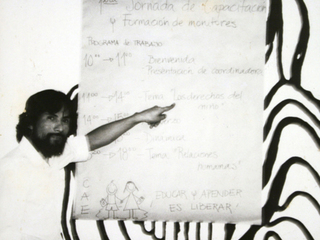 Jornada de Capacitación
y Formación de monitores
PROGRAMA DE TRABAJO
10:00 → 11:00 Bienvenida
Presentación de coordinadores
11:00 → 14:00 Tema: "Los derechos del
niño"
14
Tema: "Relaciones
humanas"
C
A
E
EDUCAR Y APRENDER
ES LIBERAR!